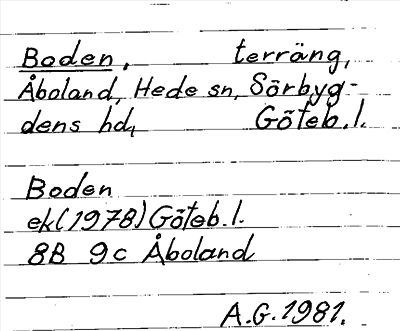 Boden, terräng,
Åboland, Hede sn, Sörbyg-
dens hd, Göteb. l.
Boden
ek (1978) Göteb. l.
8B 9c Åboland
A.G. 1981.